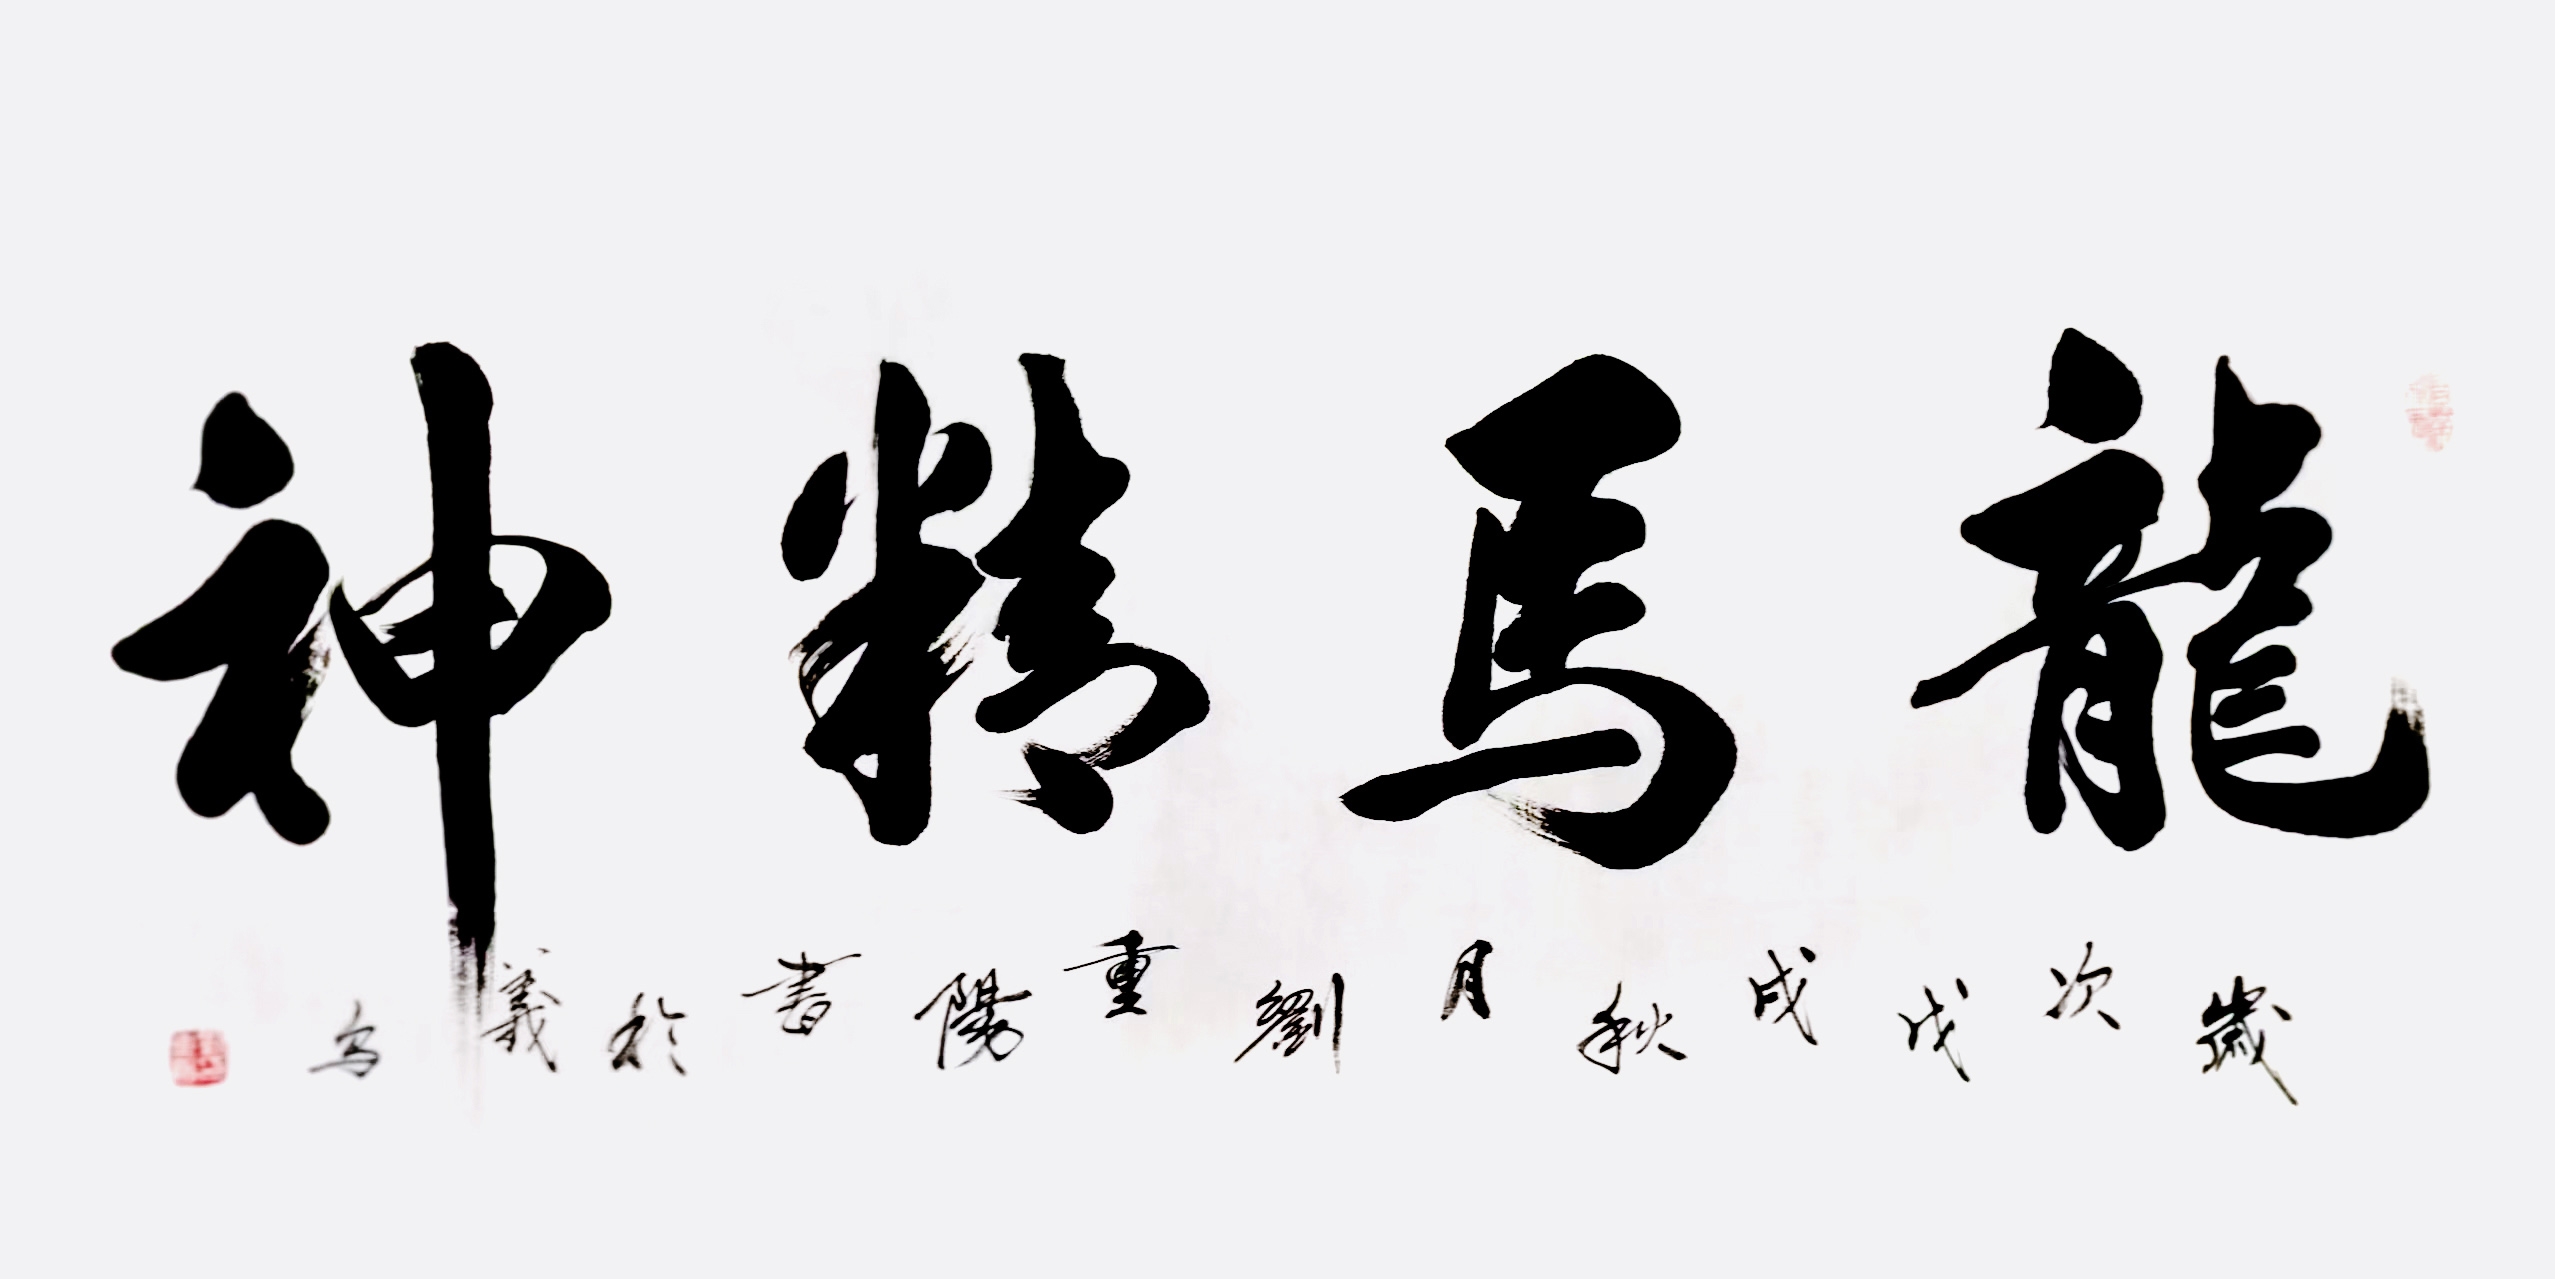 龍馬精神
歲次戊戌秋月劉重陽書於義烏